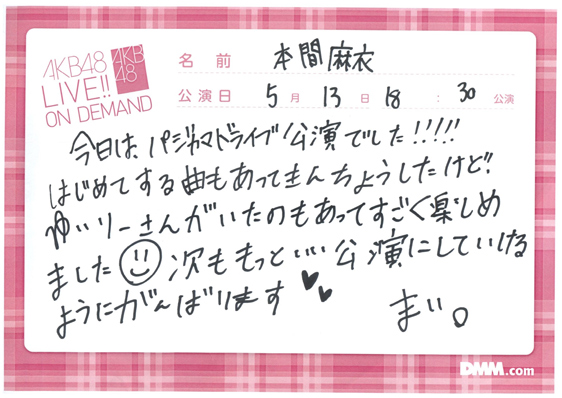 AKB48
LIVE!!
ON DEMAND
AKB
48
名前 本間麻衣
公演日 5月13日18:30公演
今日は、パジャマドライブ公演でした!!!!!
はじめてする曲もあってきんちょうしたけど!!
ゆいりーさんがいたのもあってすごく楽しめ
ました 次ももっといい公演にしていける
ようにがんばります
まい。
DMM.com